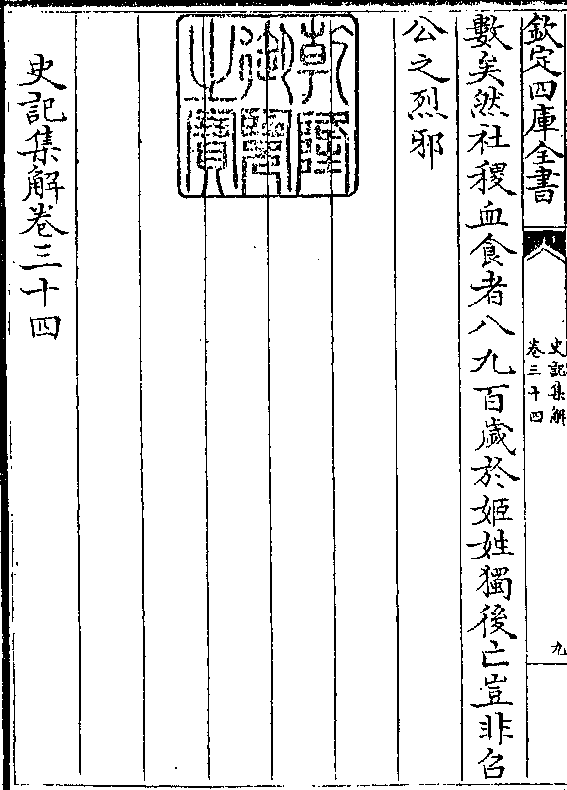 欽定四庫全書
史記集解
卷三十四
九
數矣然社稷血食者八九百歲於姬姓獨後亡豈非召
公之烈邪
乾隆
御覽
之寶
史記集解卷三十四